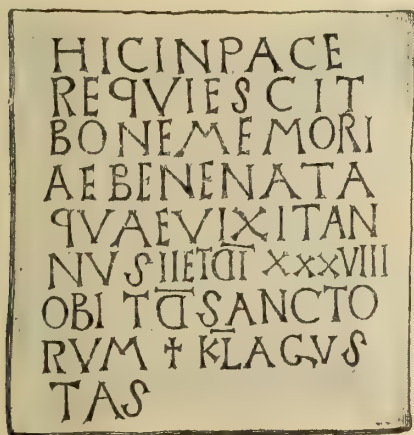 HICINPACE
REqVIESCIT
BONEMEMORI
AEBENENATA
qVAEVIXITAN
NVS IIETD̅I̅ XXXVIII
OBI TD̅SANCTO
RVM † KL̅AGVS
TAS